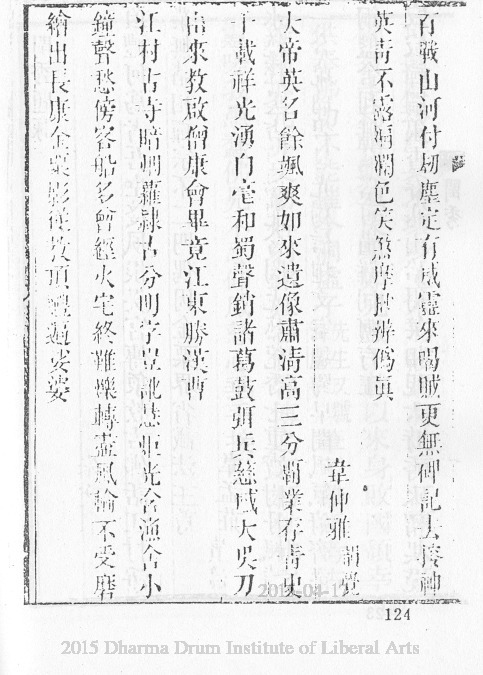 百戰山河付劫塵定有威靈來喝賊更無碑記去神
英青不露斕色笑煞摩挲辨僞真
韋仲雅 韻覺
大帝英名餘颯爽如來遺像肅清高三分霸業存青史
千載祥光湧白毫和蜀聲銷諸葛鼓弭兵慈感大吳刀
由來教啟僧康會畢竟江東勝漢曹
江村古寺暗烟蘿隸古分明字豈訛慧炬光含漁舍小
鐘聲愁傍客船多曾經火宅終難爍轉盡風輪不受磨
繪出長康金粟影從教頂禮遍娑婆
124
2015 Dharma Drum Institute of Liberal Arts